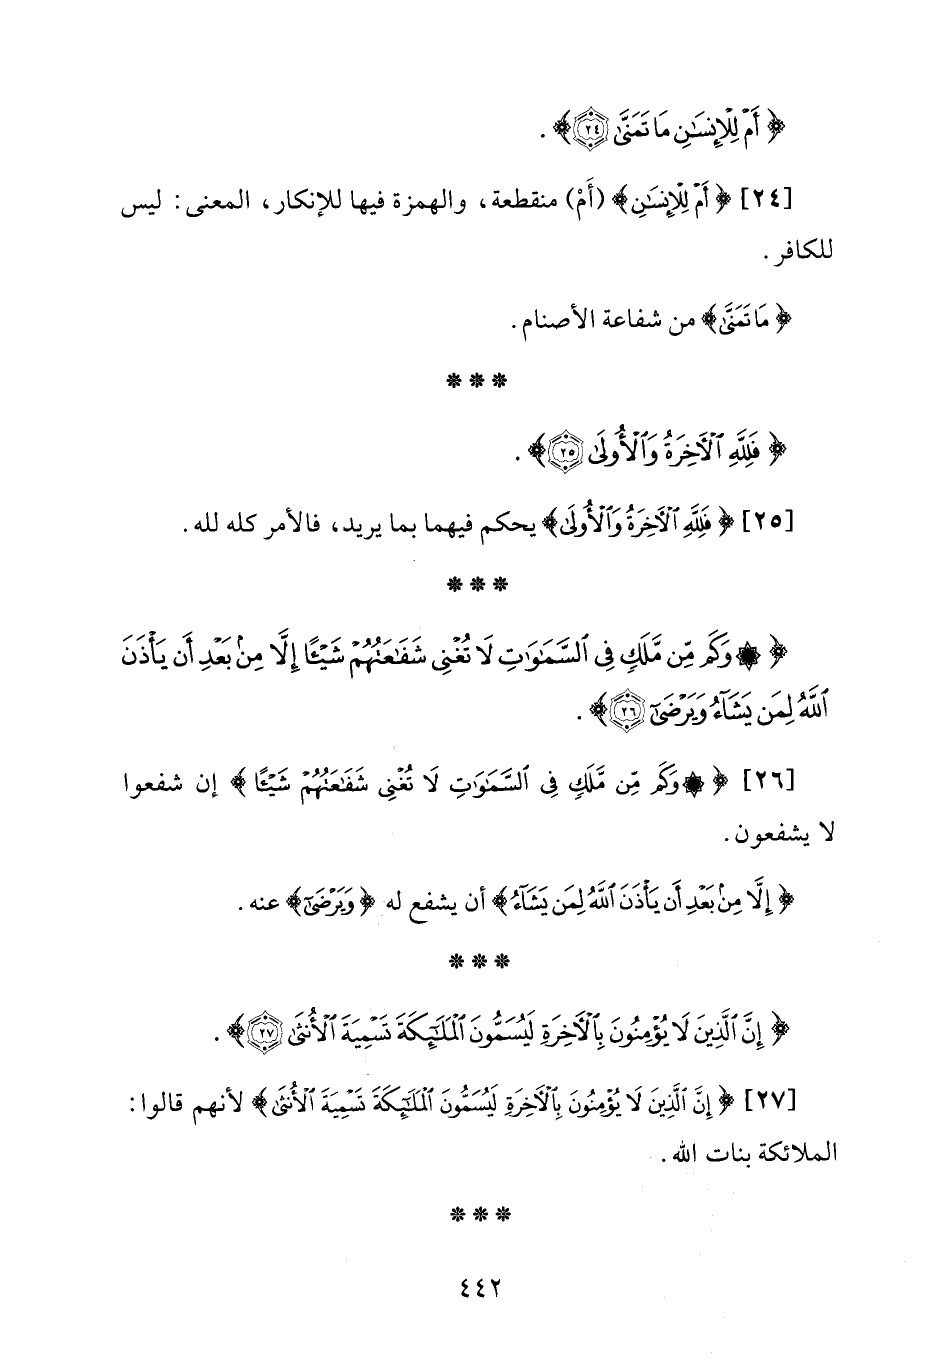 ﴿ أَمْ لِلْإِنسَٰنِ مَا تَمَنَّىٰ ﴿٢٤﴾ ﴾ .
[٢٤] ﴿ أَمْ لِلْإِنسَٰنِ ﴾ (أَمْ) منقطعة، والهمزة فيها للإنكار، المعنى: ليس
للكافر .
﴿ مَا تَمَنَّىٰ ﴾ من شفاعة الأصنام.
* * *
﴿ فَلِلَّهِ ٱلْآخِرَةُ وَٱلْأُولَىٰ ﴿٢٥﴾ ﴾ .
[٢٥] ﴿ فَلِلَّهِ ٱلْآخِرَةُ وَٱلْأُولَىٰ ﴾ يحكم فيهما بما يريد، فالأمر كله لله.
* * *
﴿ ۞ وَكَم مِّن مَّلَكٍ فِى ٱلسَّمَٰوَٰتِ لَا تُغْنِى شَفَٰعَتُهُمْ شَيْـًٔا إِلَّا مِنۢ بَعْدِ أَن يَأْذَنَ
ٱللَّهُ لِمَن يَشَآءُ وَيَرْضَىٰٓ ﴿٢٦﴾ ﴾ .
[٢٦] ﴿ ۞ وَكَم مِّن مَّلَكٍ فِى ٱلسَّمَٰوَٰتِ لَا تُغْنِى شَفَٰعَتُهُمْ شَيْـًٔا ﴾ إن شفعوا
لا يشفعون .
﴿ إِلَّا مِنۢ بَعْدِ أَن يَأْذَنَ ٱللَّهُ لِمَن يَشَآءُ ﴾ أن يشفع له ﴿ وَيَرْضَىٰٓ ﴾ عنه .
* * *
﴿ إِنَّ ٱلَّذِينَ لَا يُؤْمِنُونَ بِٱلْآخِرَةِ لَيُسَمُّونَ ٱلْمَلَٰٓئِكَةَ تَسْمِيَةَ ٱلْأُنثَىٰ ﴿٢٧﴾ ﴾ .
[٢٧] ﴿ إِنَّ ٱلَّذِينَ لَا يُؤْمِنُونَ بِٱلْآخِرَةِ لَيُسَمُّونَ ٱلْمَلَٰٓئِكَةَ تَسْمِيَةَ ٱلْأُنثَىٰ ﴾ لأنهم قالوا:
الملائكة بنات الله .
* * *
٤٤٢